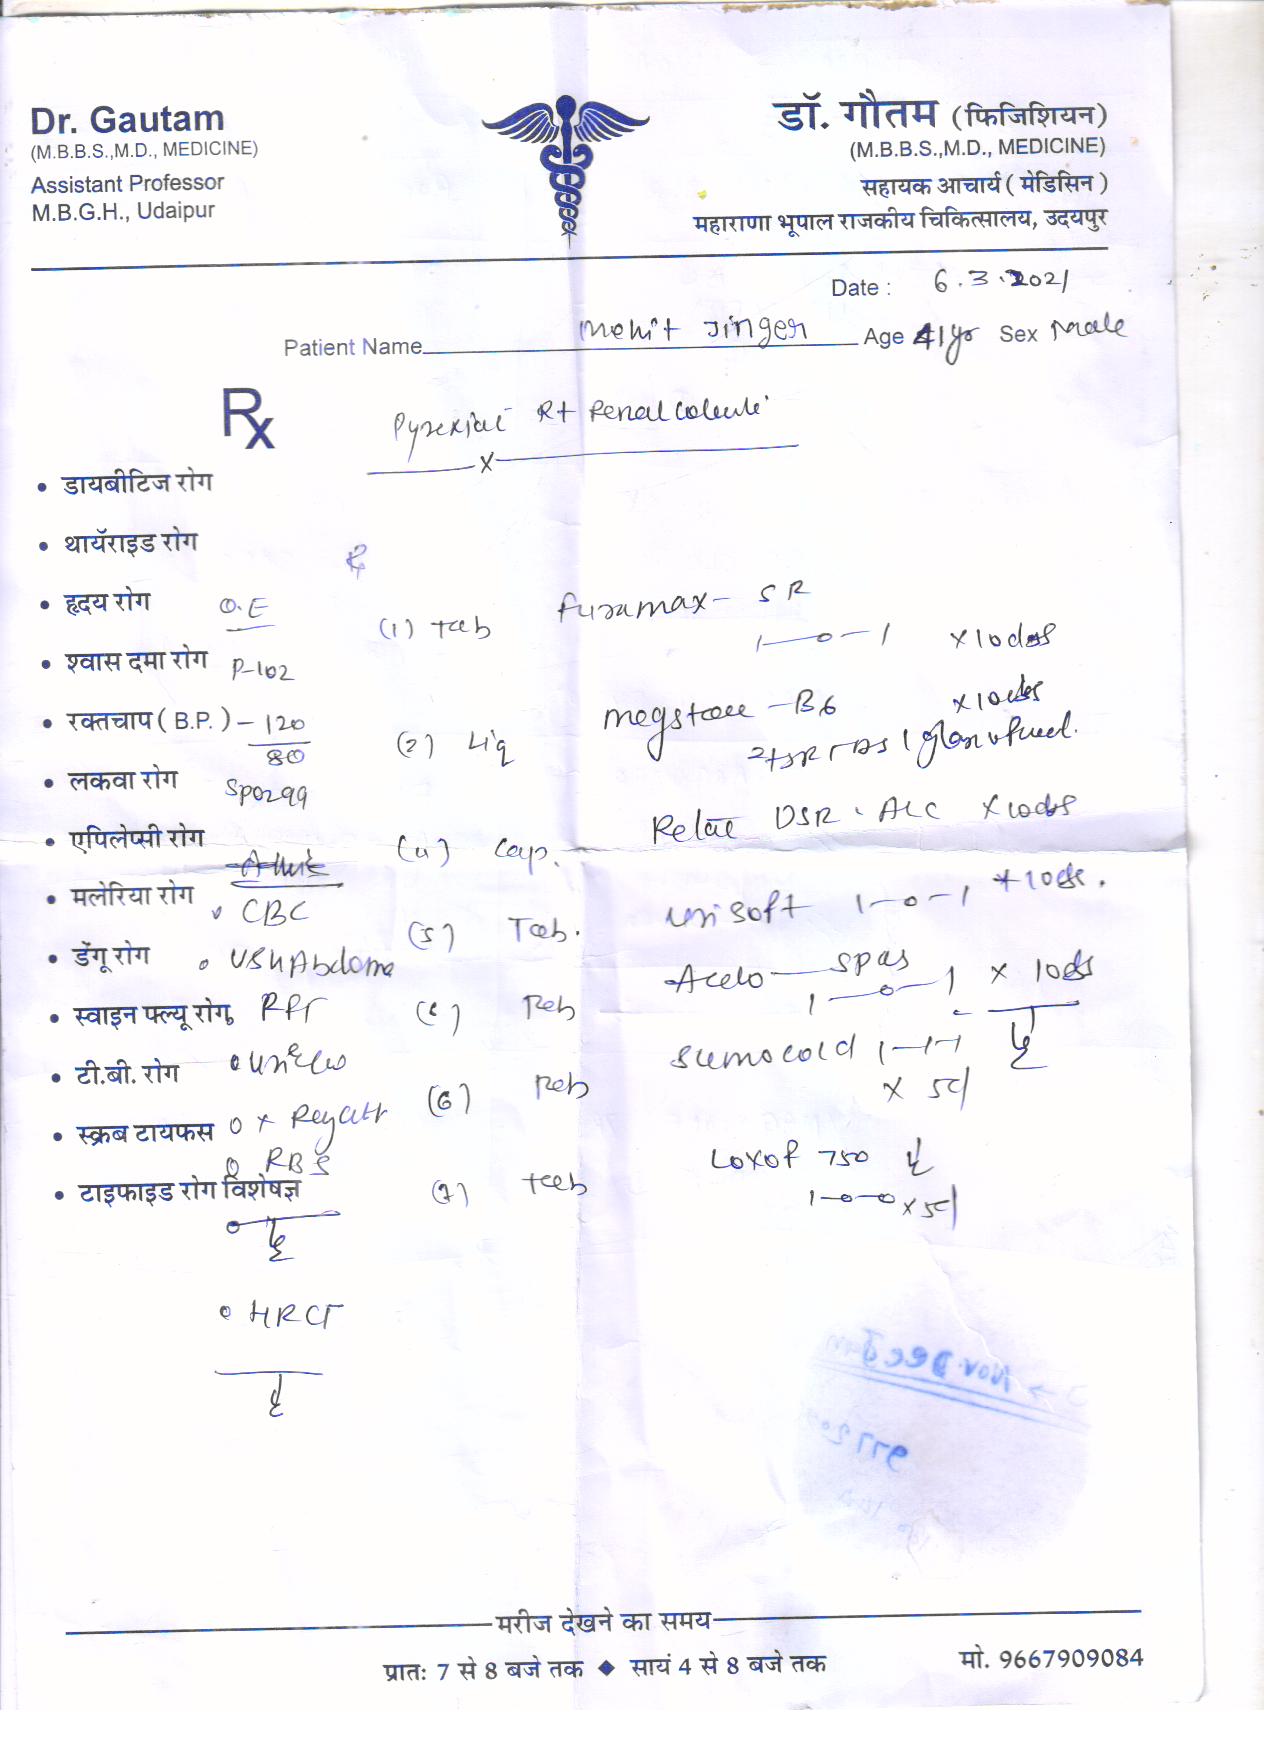 Dr. Gautam
(M.B.B.S.,M.D., MEDICINE)
Assistant Professor
M.B.G.H., Udaipur
डॉ. गौतम (फिजिशियन)
(M.B.B.S.,M.D., MEDICINE)
सहायक आचार्य ( मेडिसिन )
महाराणा भूपाल राजकीय चिकित्सालय, उदयपुर
Date : 6.3.2021
Patient Name Mohit Jinger Age 41yr Sex Male
Rx
Rt Renal
• डायबीटिज रोग
• थायॅराइड रोग
• हृदय रोग O.E
• श्वास दमा रोग P-102
• रक्तचाप ( B.P. ) - 120
80
• लकवा रोग SpO299
• एपिलेप्सी रोग
• मलेरिया रोग
CBC
• डेंगू रोग
• स्वाइन फ्ल्यू रोग RFT
• टी.बी. रोग
• स्क्रब टायफस
RBS
• टाइफाइड रोग विशेषज्ञ
HRCT
(1) Tab Furamax - SR
1-0-1 x 10 days
(2) Liq - B6 x 10 days
(4) Cap. DSR x 10 days
(5) Tab. Unisoft 1-0-1 x 10 days
Tab Acelo - spas
1-0-1 x 10 days
(6) Tab Sumocold 1-1-1
x 5d
(7) Tab Loxof 750
1-0-0 x 5d
Nov. Dec Jan
मरीज देखने का समय
प्रातः 7 से 8 बजे तक ◆ सायं 4 से 8 बजे तक
मो. 9667909084